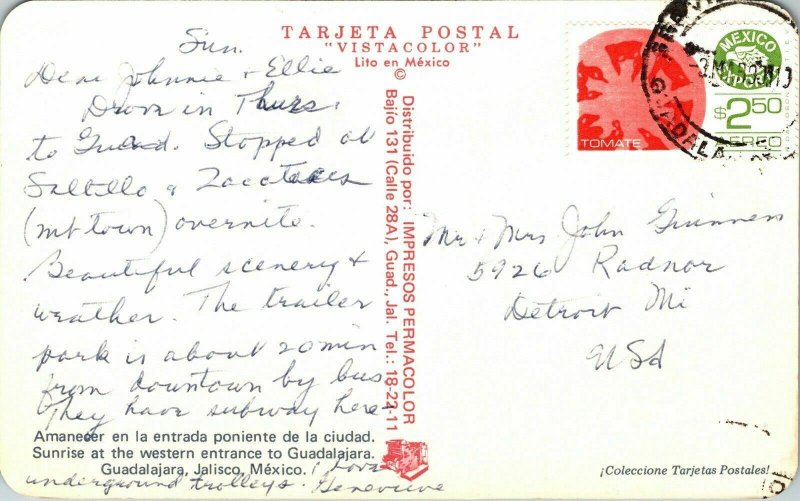 TARJETA POSTAL
"VISTACOLOR"
Lito en México
©
Sun.
Dear Johnnie & Ellie
Drove in Thurs.
to Guad. Stopped at
Saltillo & Zacatecas
(mt town) overnite.
Beautiful scenery &
weather. The trailer
park is about 20 min
from downtown by bus
They have subway here
underground trolleys. Genevieve
Amanecer en la entrada poniente de la ciudad.
Sunrise at the western entrance to Guadalajara.
Guadalajara, Jalisco, México.
Distribuido por: IMPRESOS PERMACOLOR
Bajío 131 (Calle 28A), Guad., Jal. Tel.: 18-22-11
TOMATE
MEXICO
EXPORTA
$2.50
AEREO
Mr & Mrs John Guinness
5926 Radnor
Detroit Mi
USA
¡Coleccione Tarjetas Postales!